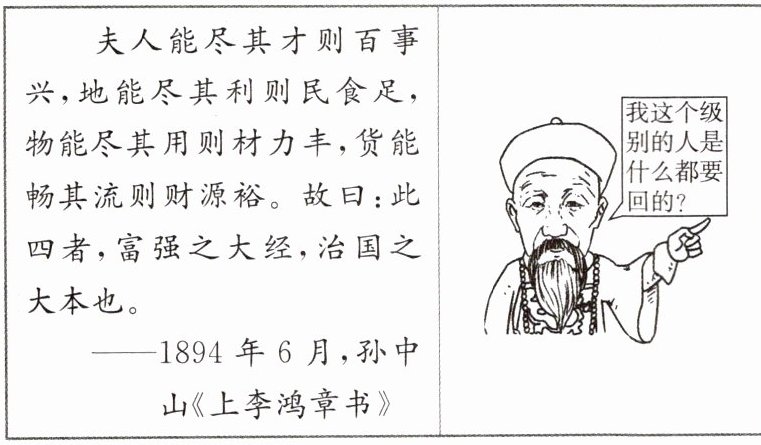 夫人能尽其才则百事
兴,地能尽其利则民食足,
物能尽其用则材力丰,货能
畅其流则财源裕。故曰:此
四者,富强之大经,治国之
大本也。
——1894 年 6 月,孙中
山《上李鸿章书》
我这个级
别的人是
什么都要
回的?